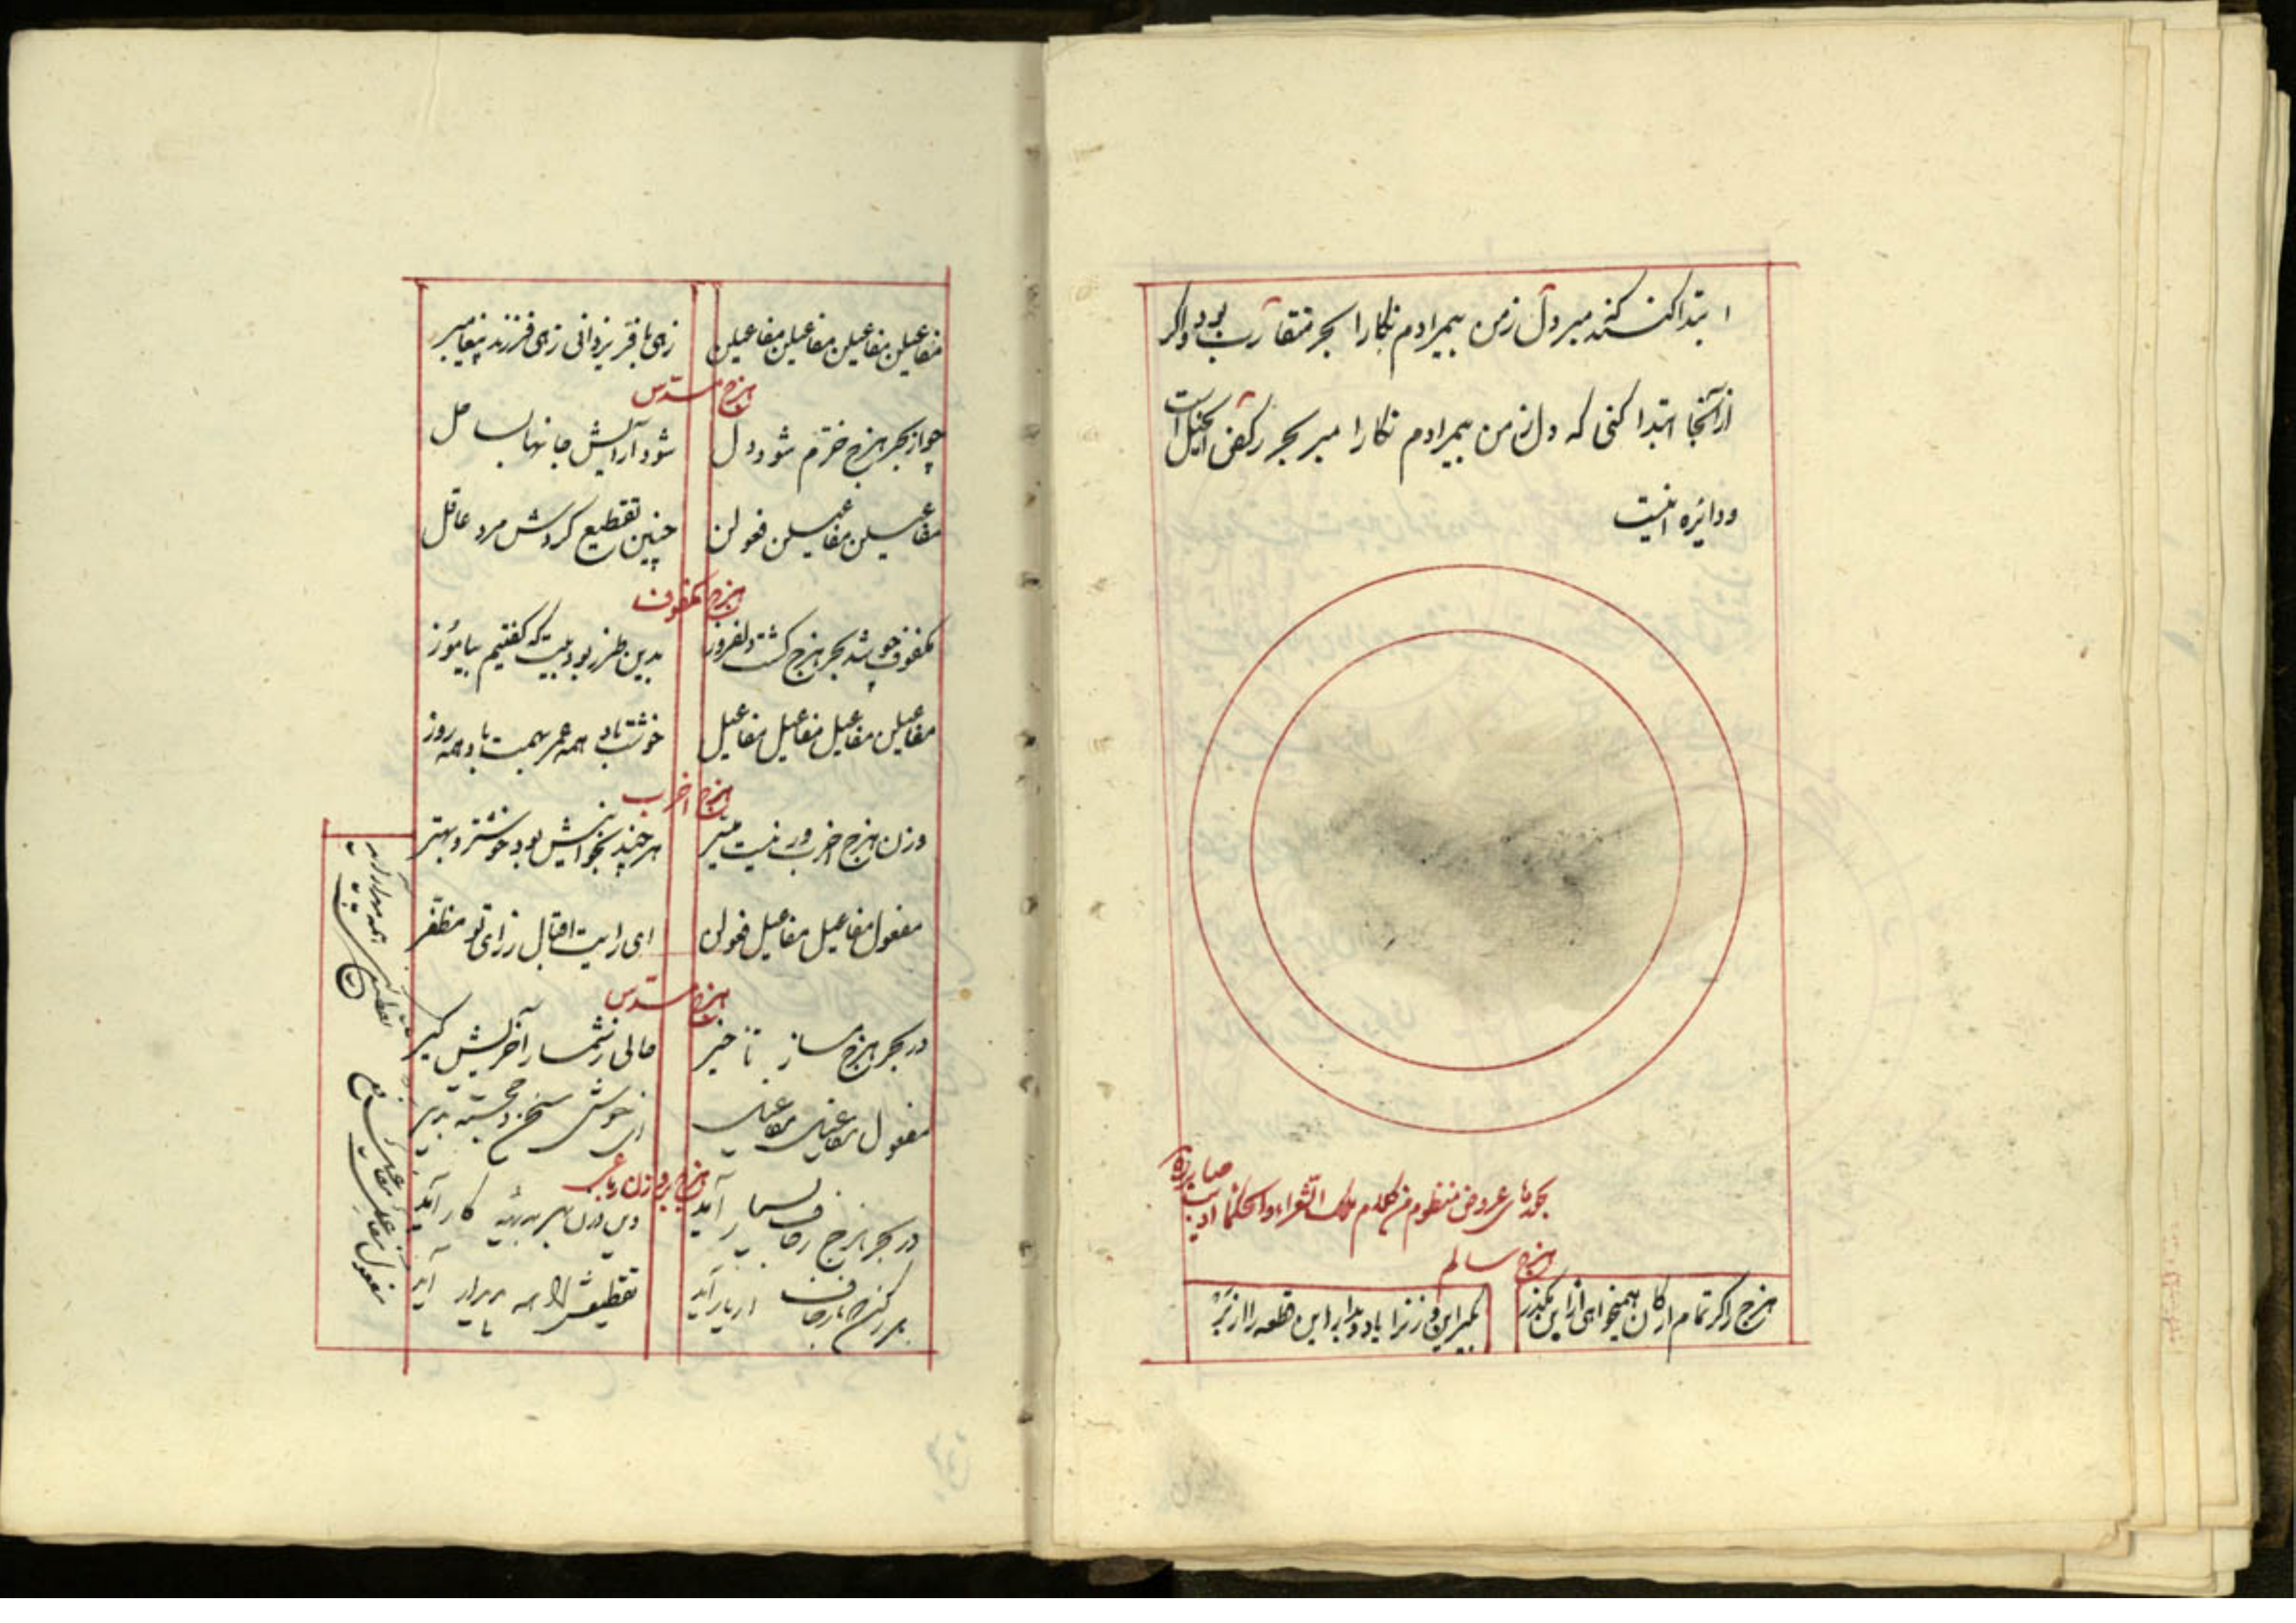 ابتدا کنند میر دل زمن بیمرادم نکارا بحر متقارب بود واکر
از آنجا ابتدا کنی که دل زمن بیمرادم نکارا میر بحر رکض الخیل است
ودایره اینست
عروض منظوم من کلام ملک الشعراء والحکما ادیب صابر
هزج سالم
هزج را کر تمام ارکان همیخواهی ازاین مکذر
بکیر این وزنرا یاد و بدار این قطعه را از بر
مفاعیلن مفاعیلن مفاعیلن مفاعیلن
زهی با فر یزدانی زهی فرزند پیغامبر
هزج مسدس
چو از بحر هزج خرم شود دل
شود آرایش جانها بساحل
مفاعیلن مفاعیلن فعولن
چنین تقطیع کردش مرد عاقل
هزج مکفوف
مکفوف چو شد بحر هزج کشت دلفروز
بدین طرز بود بیت که کفتیم بیاموز
مفاعیلن مفاعیل مفاعیل مفاعیل
خوشت باد همه عمر بهمت باد همه روز
هزج اخرب
وزن هزج اخرب ورنیست میسر
هر چند بخوانیش بود خوشتر و بهتر
مفعول مفاعیل مفاعیل فعولن
ای رایت اقبال ز رای تو مظفر
هزج مسدس
در بحر هزج مساز تاخیر
مالی زشمار آخرش کیر
مفعول مفاعیلن مفاعیل
ای خوش سخن و خجسته تدبیر
هزج بر وزن رباعی
در بحر هزج زحاف بسیار آید
وین وزن بهر بدیهه کار آید
تقطیعش همه آید
مفعول مفاعلن مفاعیلن فع